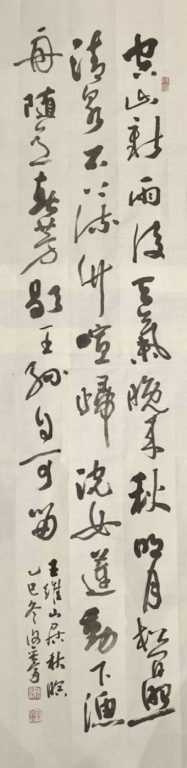 空山新雨後天氣晚來秋明月松間照
清泉石上流竹喧歸浣女蓮動下漁
舟隨意春芳歇王孫自可留
王維山居秋暝
乙巳冬